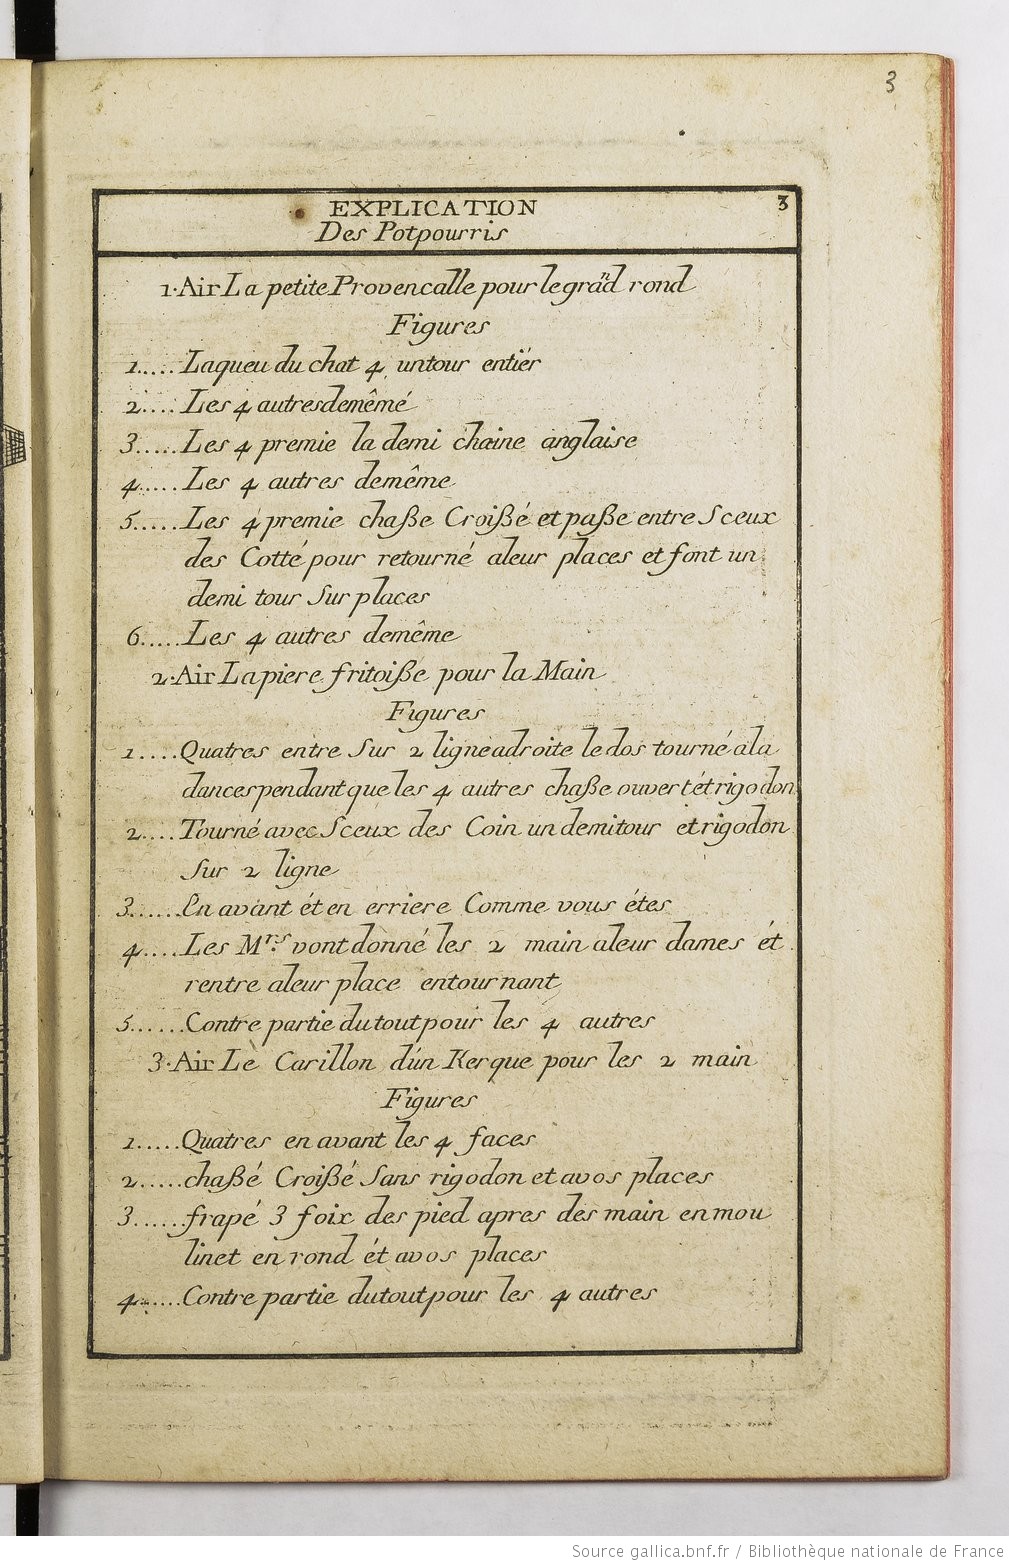 3
EXPLICATION 3
Des Potpourris
1. Air La petite Provencalle pour le grãd rond
Figures
1..... Laqueu du chat 4 untour entiér
2.... Les 4 autresdemêmé
3..... Les 4 premie la demi chaine anglaise
4..... Les 4 autres demême
5..... Les 4 premie chaße Croißé et paße entre Sceux
des Cotté pour retourné aleur places et font un
demi tour Sur places
6..... Les 4 autres demême
2. Air Lapiere fritoiße pour la Main
Figures
1.... Quatres entre Sur 2 ligneadroite ledos tourné ala
dancespendantqueles 4 autres chaße ouvert ét rigodon
2.... Tourné avec Sceux des Coin un demitour et rigodon
Sur 2 ligne
3...... En avant ét en erriere Comme vous étes
4..... Les Mrs vont donné les 2 main aleur dames ét
rentre aleur place entournant
5...... Contre partie dutout pour les 4 autres
3. Air Le Carillon dún Kerque pour les 2 main
Figures
1..... Quatres en avant les 4 faces
2..... chaßé Croißé Sans rigodon et avos places
3...... frapé 3 foix des pied apres des main en mou
linet en rond ét avos places
4...... Contre partie dutout pour les 4 autres
Source gallica.bnf.fr / Bibliothèque nationale de France